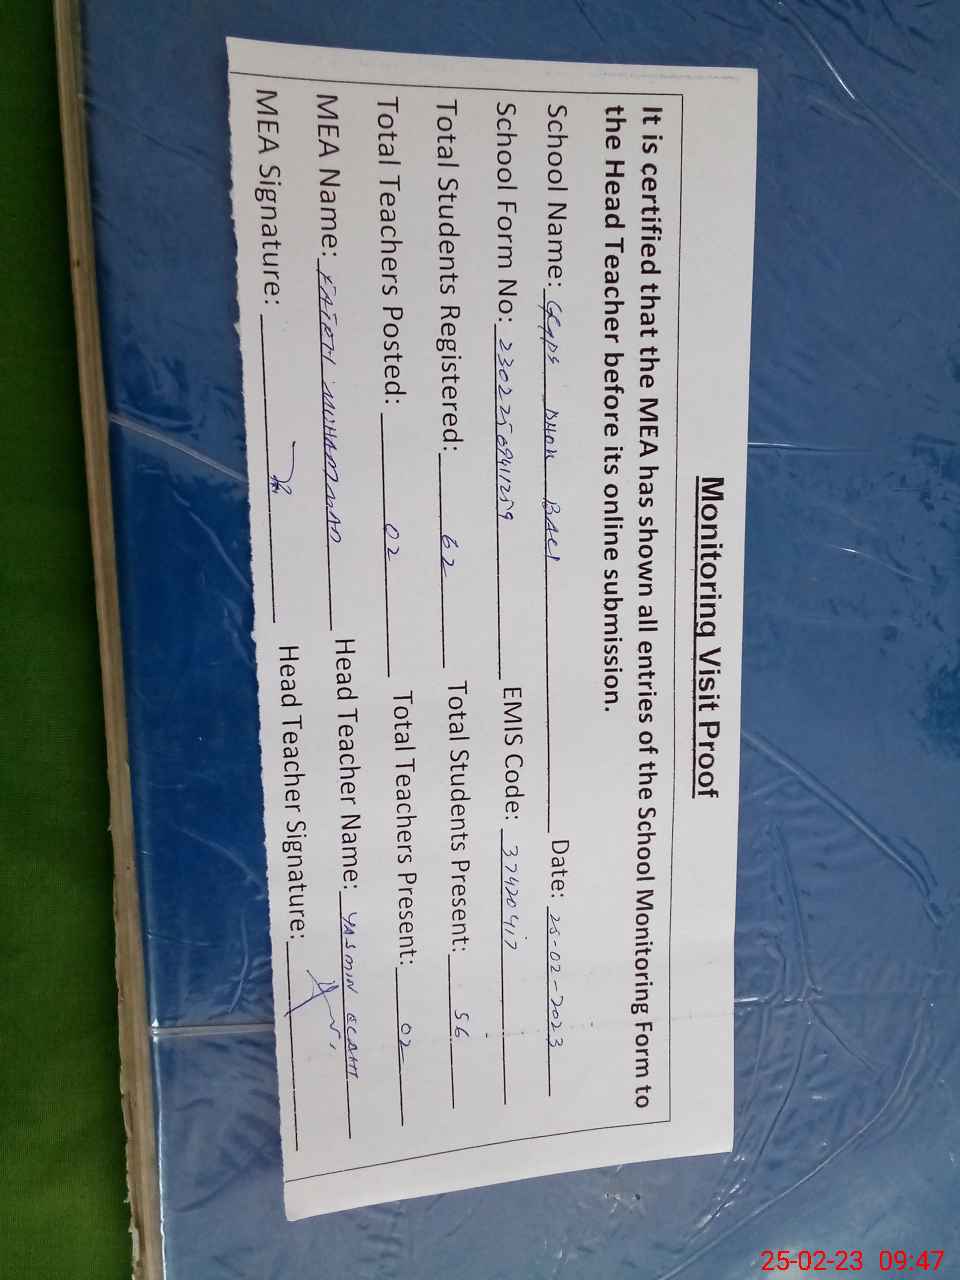 Monitoring Visit Proof
It is certified that the MEA has shown all entries of the School Monitoring Form to
the Head Teacher before its online submission.
School Name: GGPS DHOK BACI Date: 25-02-2023
School Form No: 23022509411259 EMIS Code: 37420417
Total Students Registered: 62 Total Students Present: 56
Total Teachers Posted: 02 Total Teachers Present: 02
MEA Name: MUHAMMAD Head Teacher Name: YASMIN
MEA Signature: Head Teacher Signature:
25-02-23 09:47